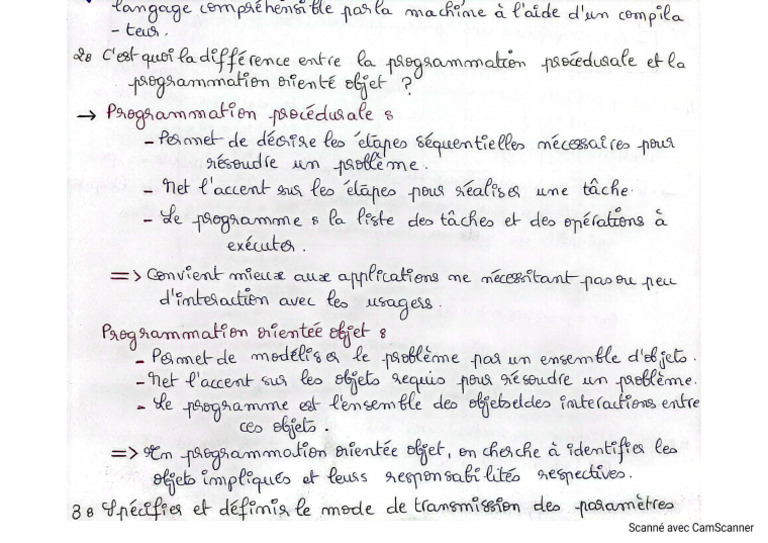 langage compréhensible par la machine à l'aide d'un compila
- teur.
2: C'est quoi la différence entre la programmation procédurale et la
programmation orienté objet ?
→ Programmation procédurale :
- Permet de décrire les étapes séquentielles nécessaires pour
résoudre un problème.
- Met l'accent sur les étapes pour réaliser une tâche.
- Le programme : la liste des tâches et des opérations à
exécuter.
=> Convient mieux aux applications ne nécessitant pas ou peu
d'interaction avec les usagers.
Programmation orientée objet :
- Permet de modéliser le problème par un ensemble d'objets.
- Met l'accent sur les objets requis pour résoudre un problème.
- Le programme est l'ensemble des objets et des interactions entre
ces objets.
=> En programmation orientée objet, on cherche à identifier les
objets impliqués et leurs responsabilités respectives.
3: Spécifier et définir le mode de transmission des paramètres
Scanné avec CamScanner